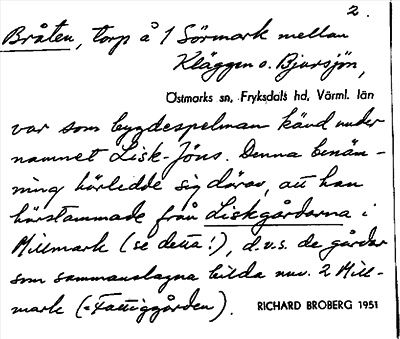 2.
Bråten, torp å 1 Sörmark mellan
Kläggen o. Bjursjön,
Östmarks sn, Fryksdals hd, Värml. län
var som bygdespelman känd under
namnet Lisk-Jöns. Denna benäm-
ning härledde sig därav, att han
härstammade från Liskgårdarna i
Millmark (se detta!), d.v.s. de gårdar
som sammanslagna bilda nuv. 2 Mill-
mark (=Fattiggården).
RICHARD BROBERG 1951